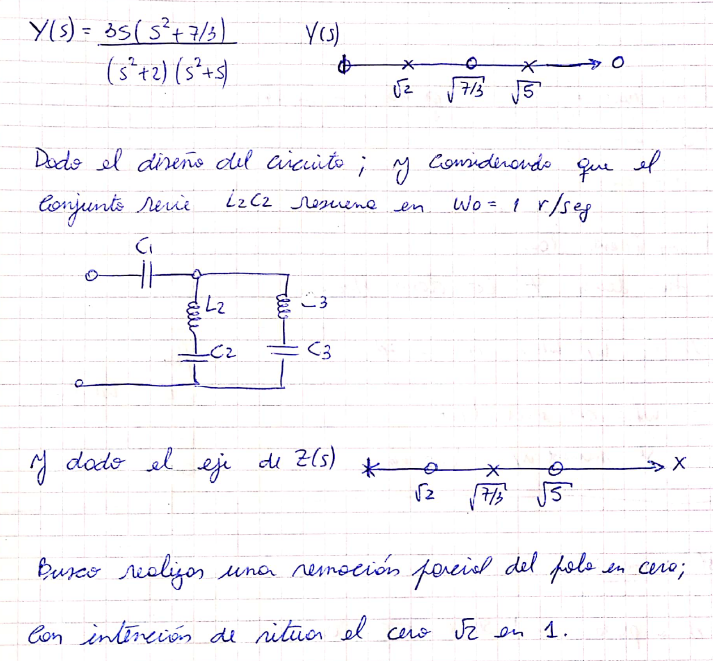 Y(s) = 3s(s²+7/3) / (s²+2)(s²+5)
Y(s)
√2 √7/3 √5 0
Dado el diseño del circuito; y considerando que el
conjunto serie L2C2 resuena en Wo = 1 r/seg
C1
L2 L3
C2 C3
y dado el eje de Z(s)
√2 √7/3 √5 x
Busco realizar una remoción parcial del polo en cero;
con intención de situar el cero √2 en 1.